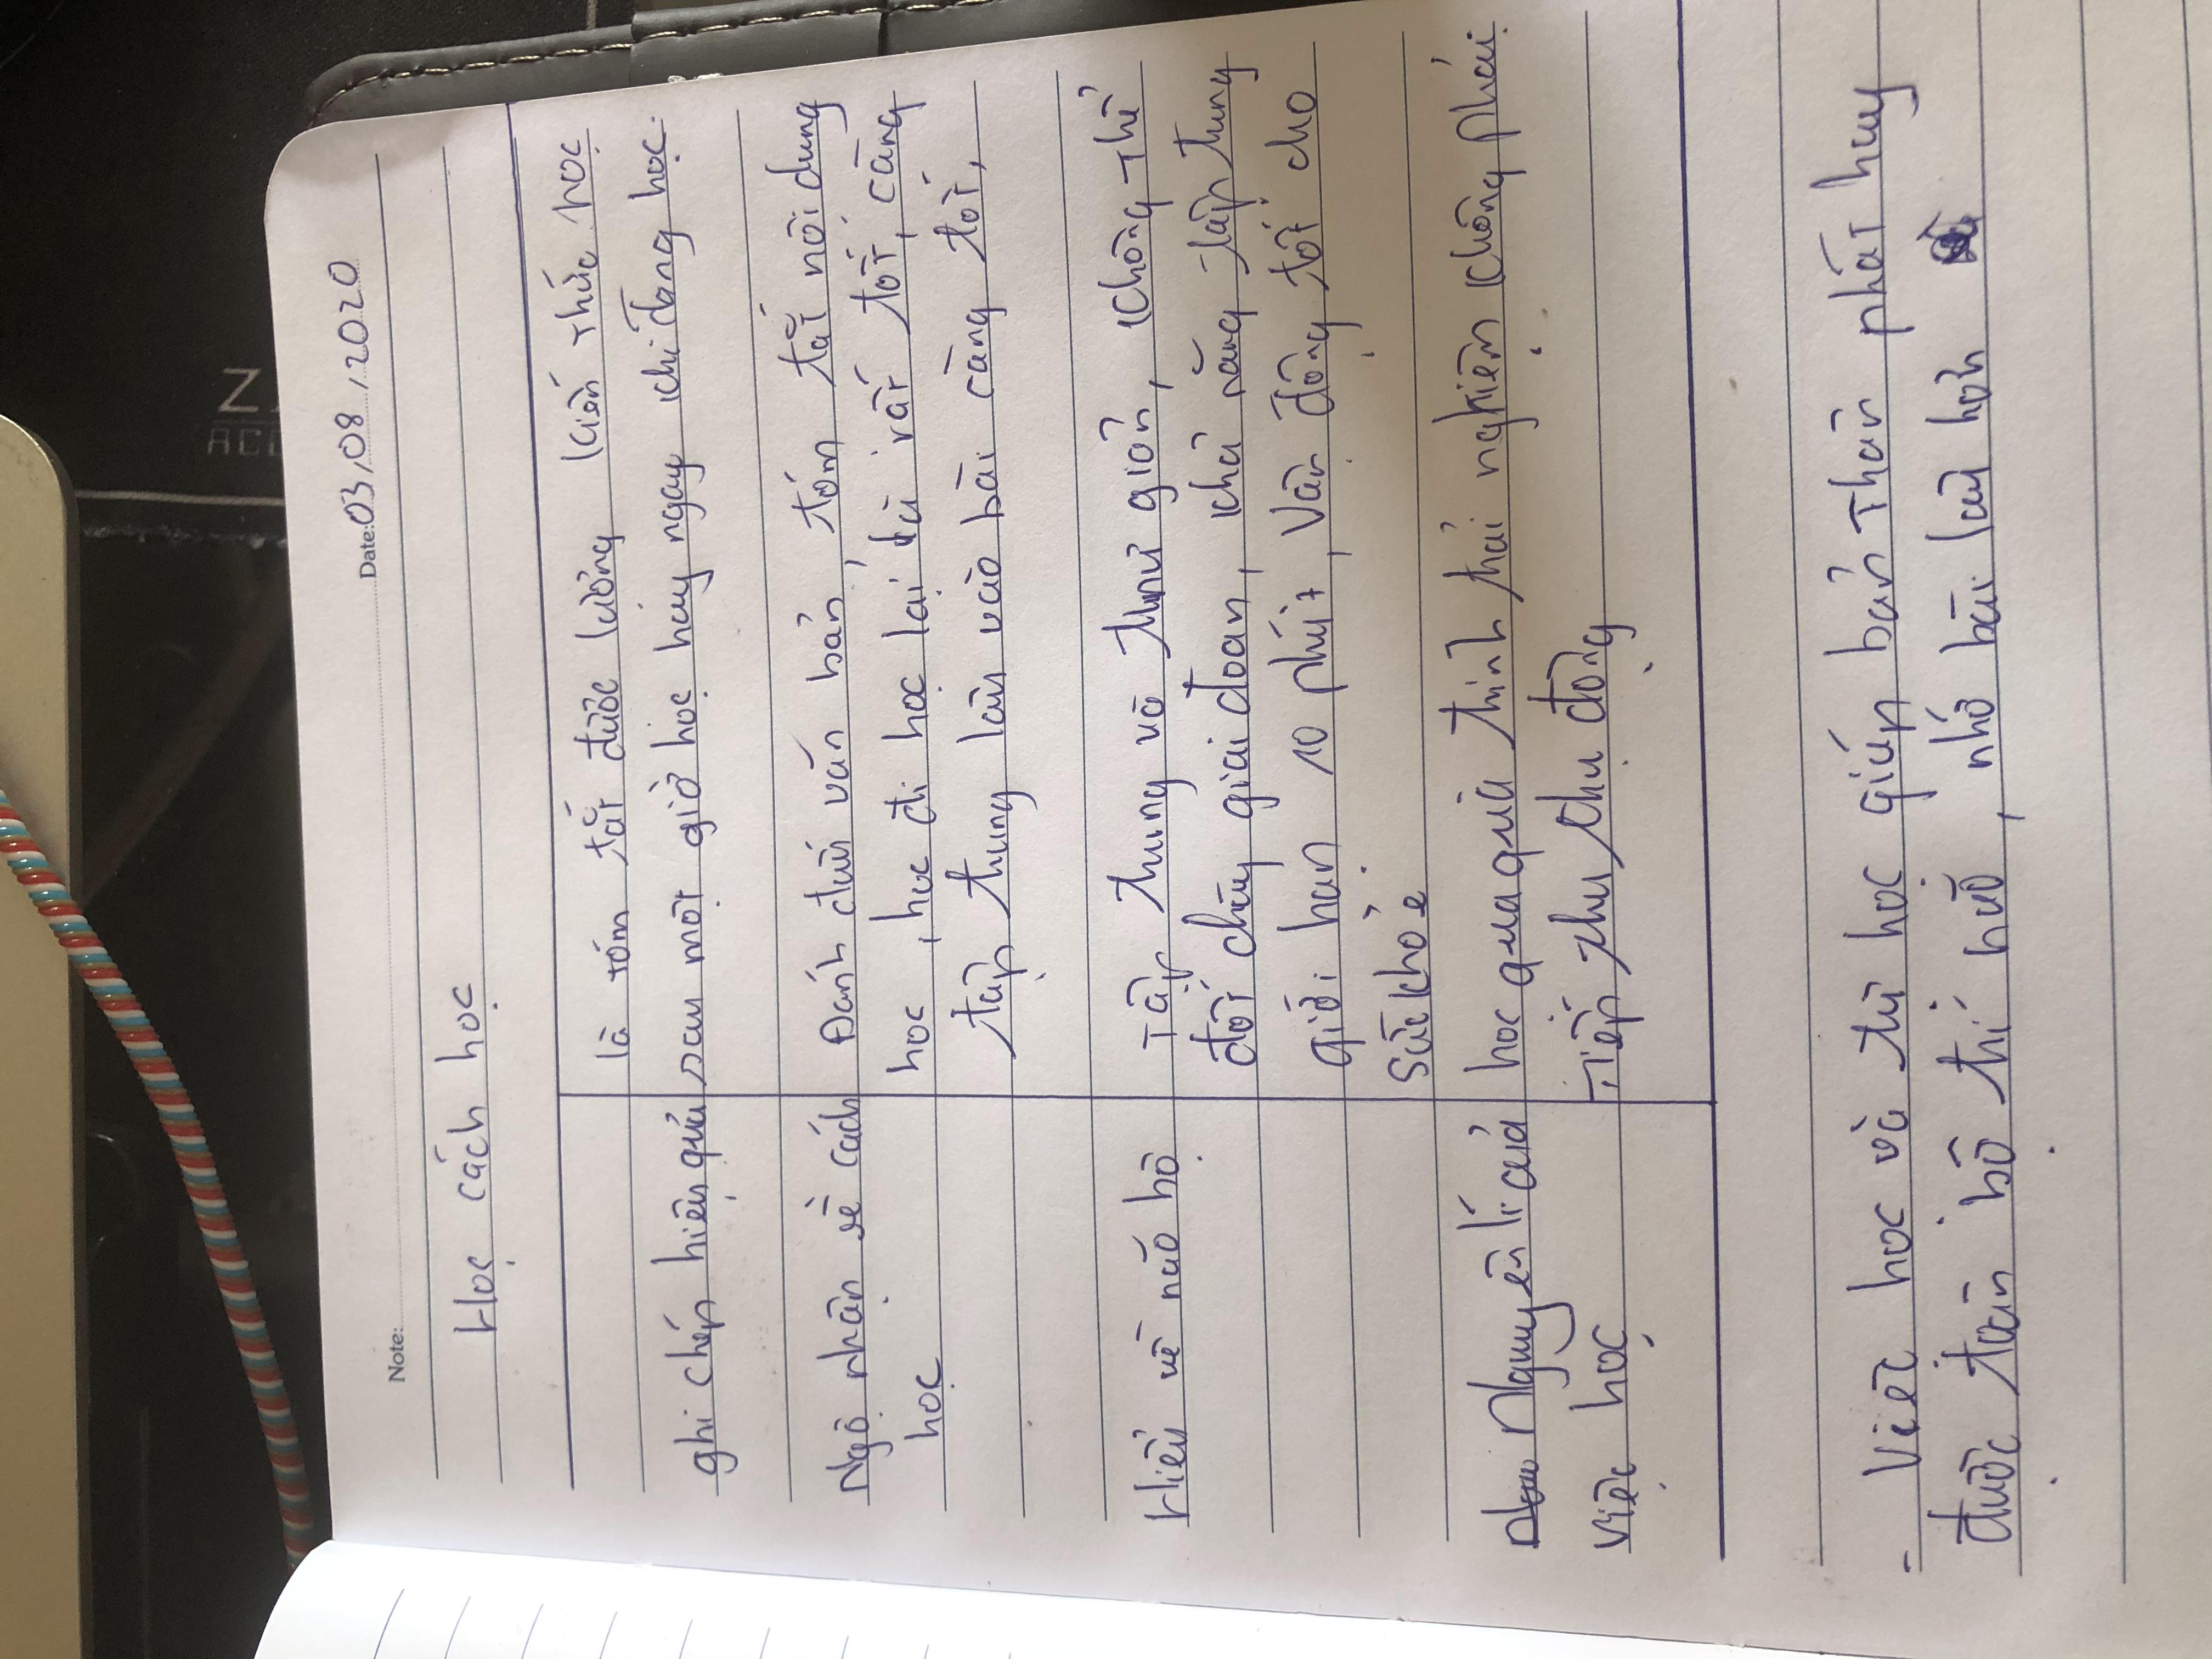 Z
ACC
Note:
Date: 03/08/2020
Học cách học
là tóm tắt được lượng kiến thức học
ghi chép hiệu quả sau một giờ học hay ngay khi đang học.
Ngộ nhận về cách học
Đánh dấu văn bản, tóm tắt nội dung
học, học đi học lại là rất tốt, càng
tập trung lâu vào bài càng tốt,
Hiểu về não bộ
Tập trung và thư giãn, không thể
đốt cháy giai đoạn, khả năng tập trung
giới hạn 10 phút, Vận động tốt cho
sức khoẻ
Nguyên lí của
việc học
học qua quá trình trải nghiệm không phải
Tiếp thu thụ động
- Việc học và tự học giúp bản thân phát huy
được toàn bộ trí não, nhớ bài lâu hơn